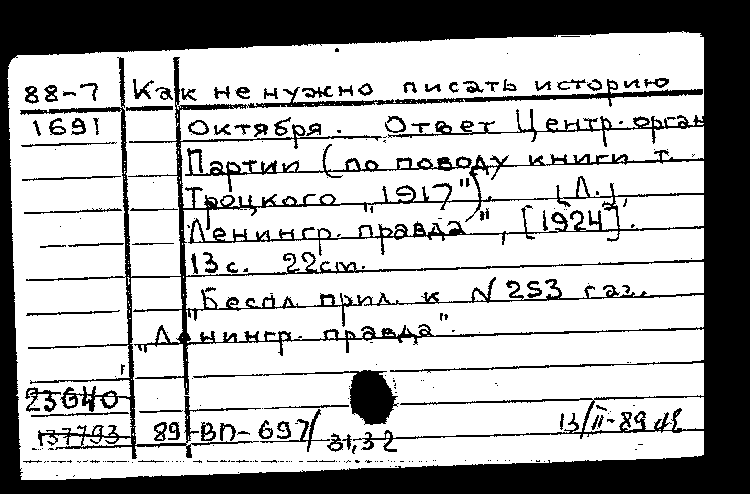 88-7 Как не нужно писать историю
1691 Октября. Ответ Центр. орган
Партии (по поводу книги т.
Троцкого „1917"). [Л.],
„Ленингр. правда", [1924].
13 с. 22 cm.
„Беспл. прил. к N 253 газ.
„Ленингр. правда".
23640
137793 89-ВП-697/ 31,32 13/II-89